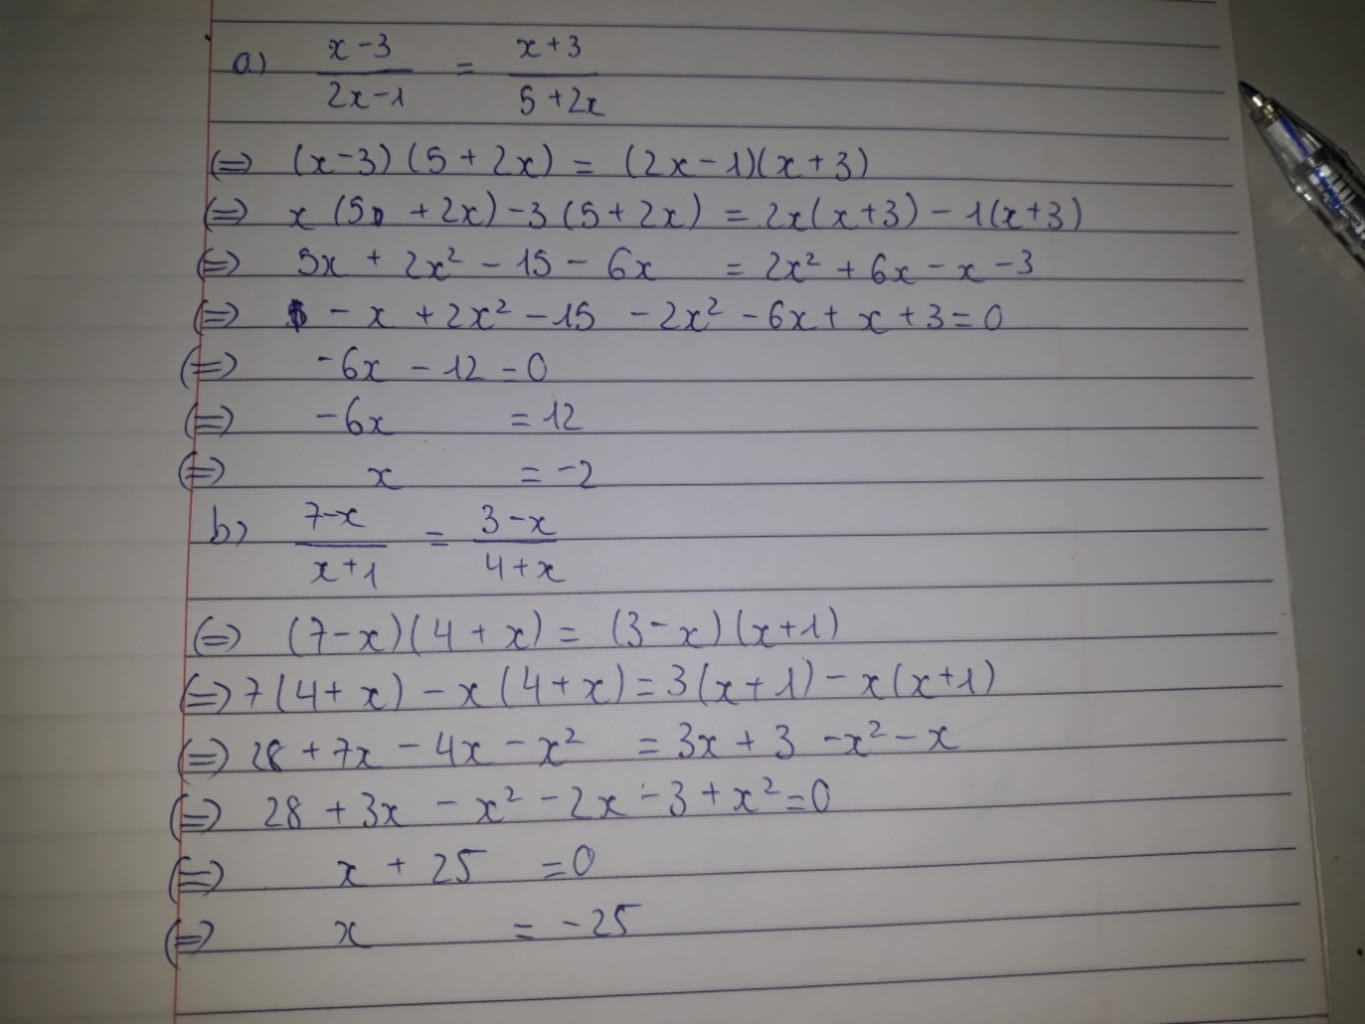 a) x-3/2x-1 = x+3/5+2x
(=) (x-3)(5+2x) = (2x-1)(x+3)
(=) x(5 + 2x) - 3(5+2x) = 2x(x+3) - 1(x+3)
(=) 5x + 2x² - 15 - 6x = 2x² + 6x - x - 3
(=) - x + 2x² - 15 - 2x² - 6x + x + 3 = 0
(=) -6x - 12 = 0
(=) -6x = 12
(=) x = -2
b) 7-x/x+1 = 3-x/4+x
(=) (7-x)(4+x) = (3-x)(x+1)
(=) 7(4+x) - x(4+x) = 3(x+1) - x(x+1)
(=) 28 + 7x - 4x - x² = 3x + 3 - x² - x
(=) 28 + 3x - x² - 2x - 3 + x² = 0
(=) x + 25 = 0
(=) x = -25